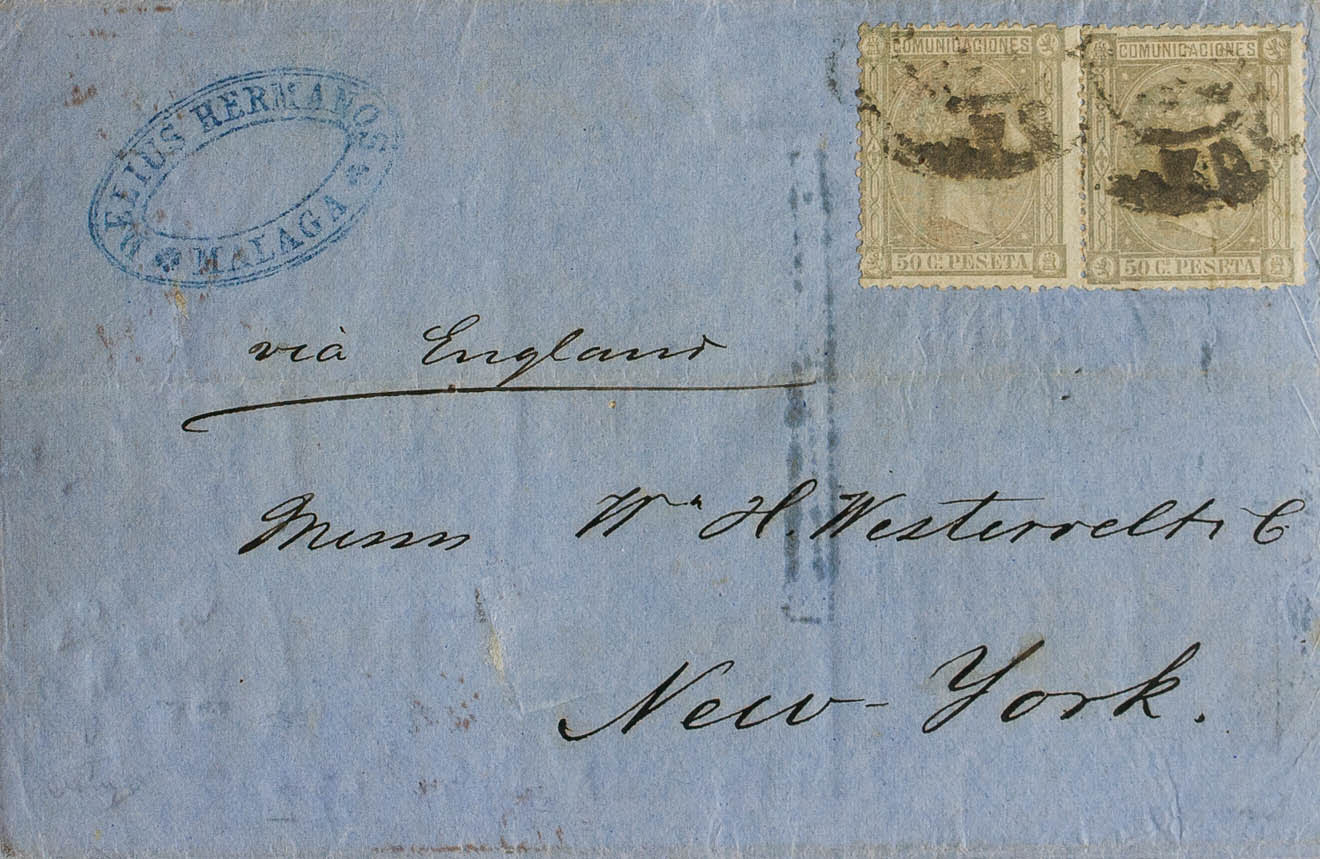 COMUNICACIONES
50 C. PESETA
COMUNICACIONES
50 C. PESETA
HERMANOS
MALAGA
vià England
Messrs Wm H. Westervelt & C
New-York.